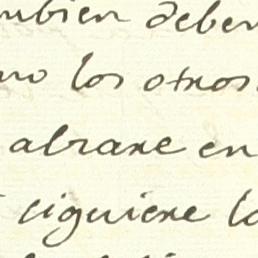 mbien deben
mo los otros
abrare en
ciguiere lo